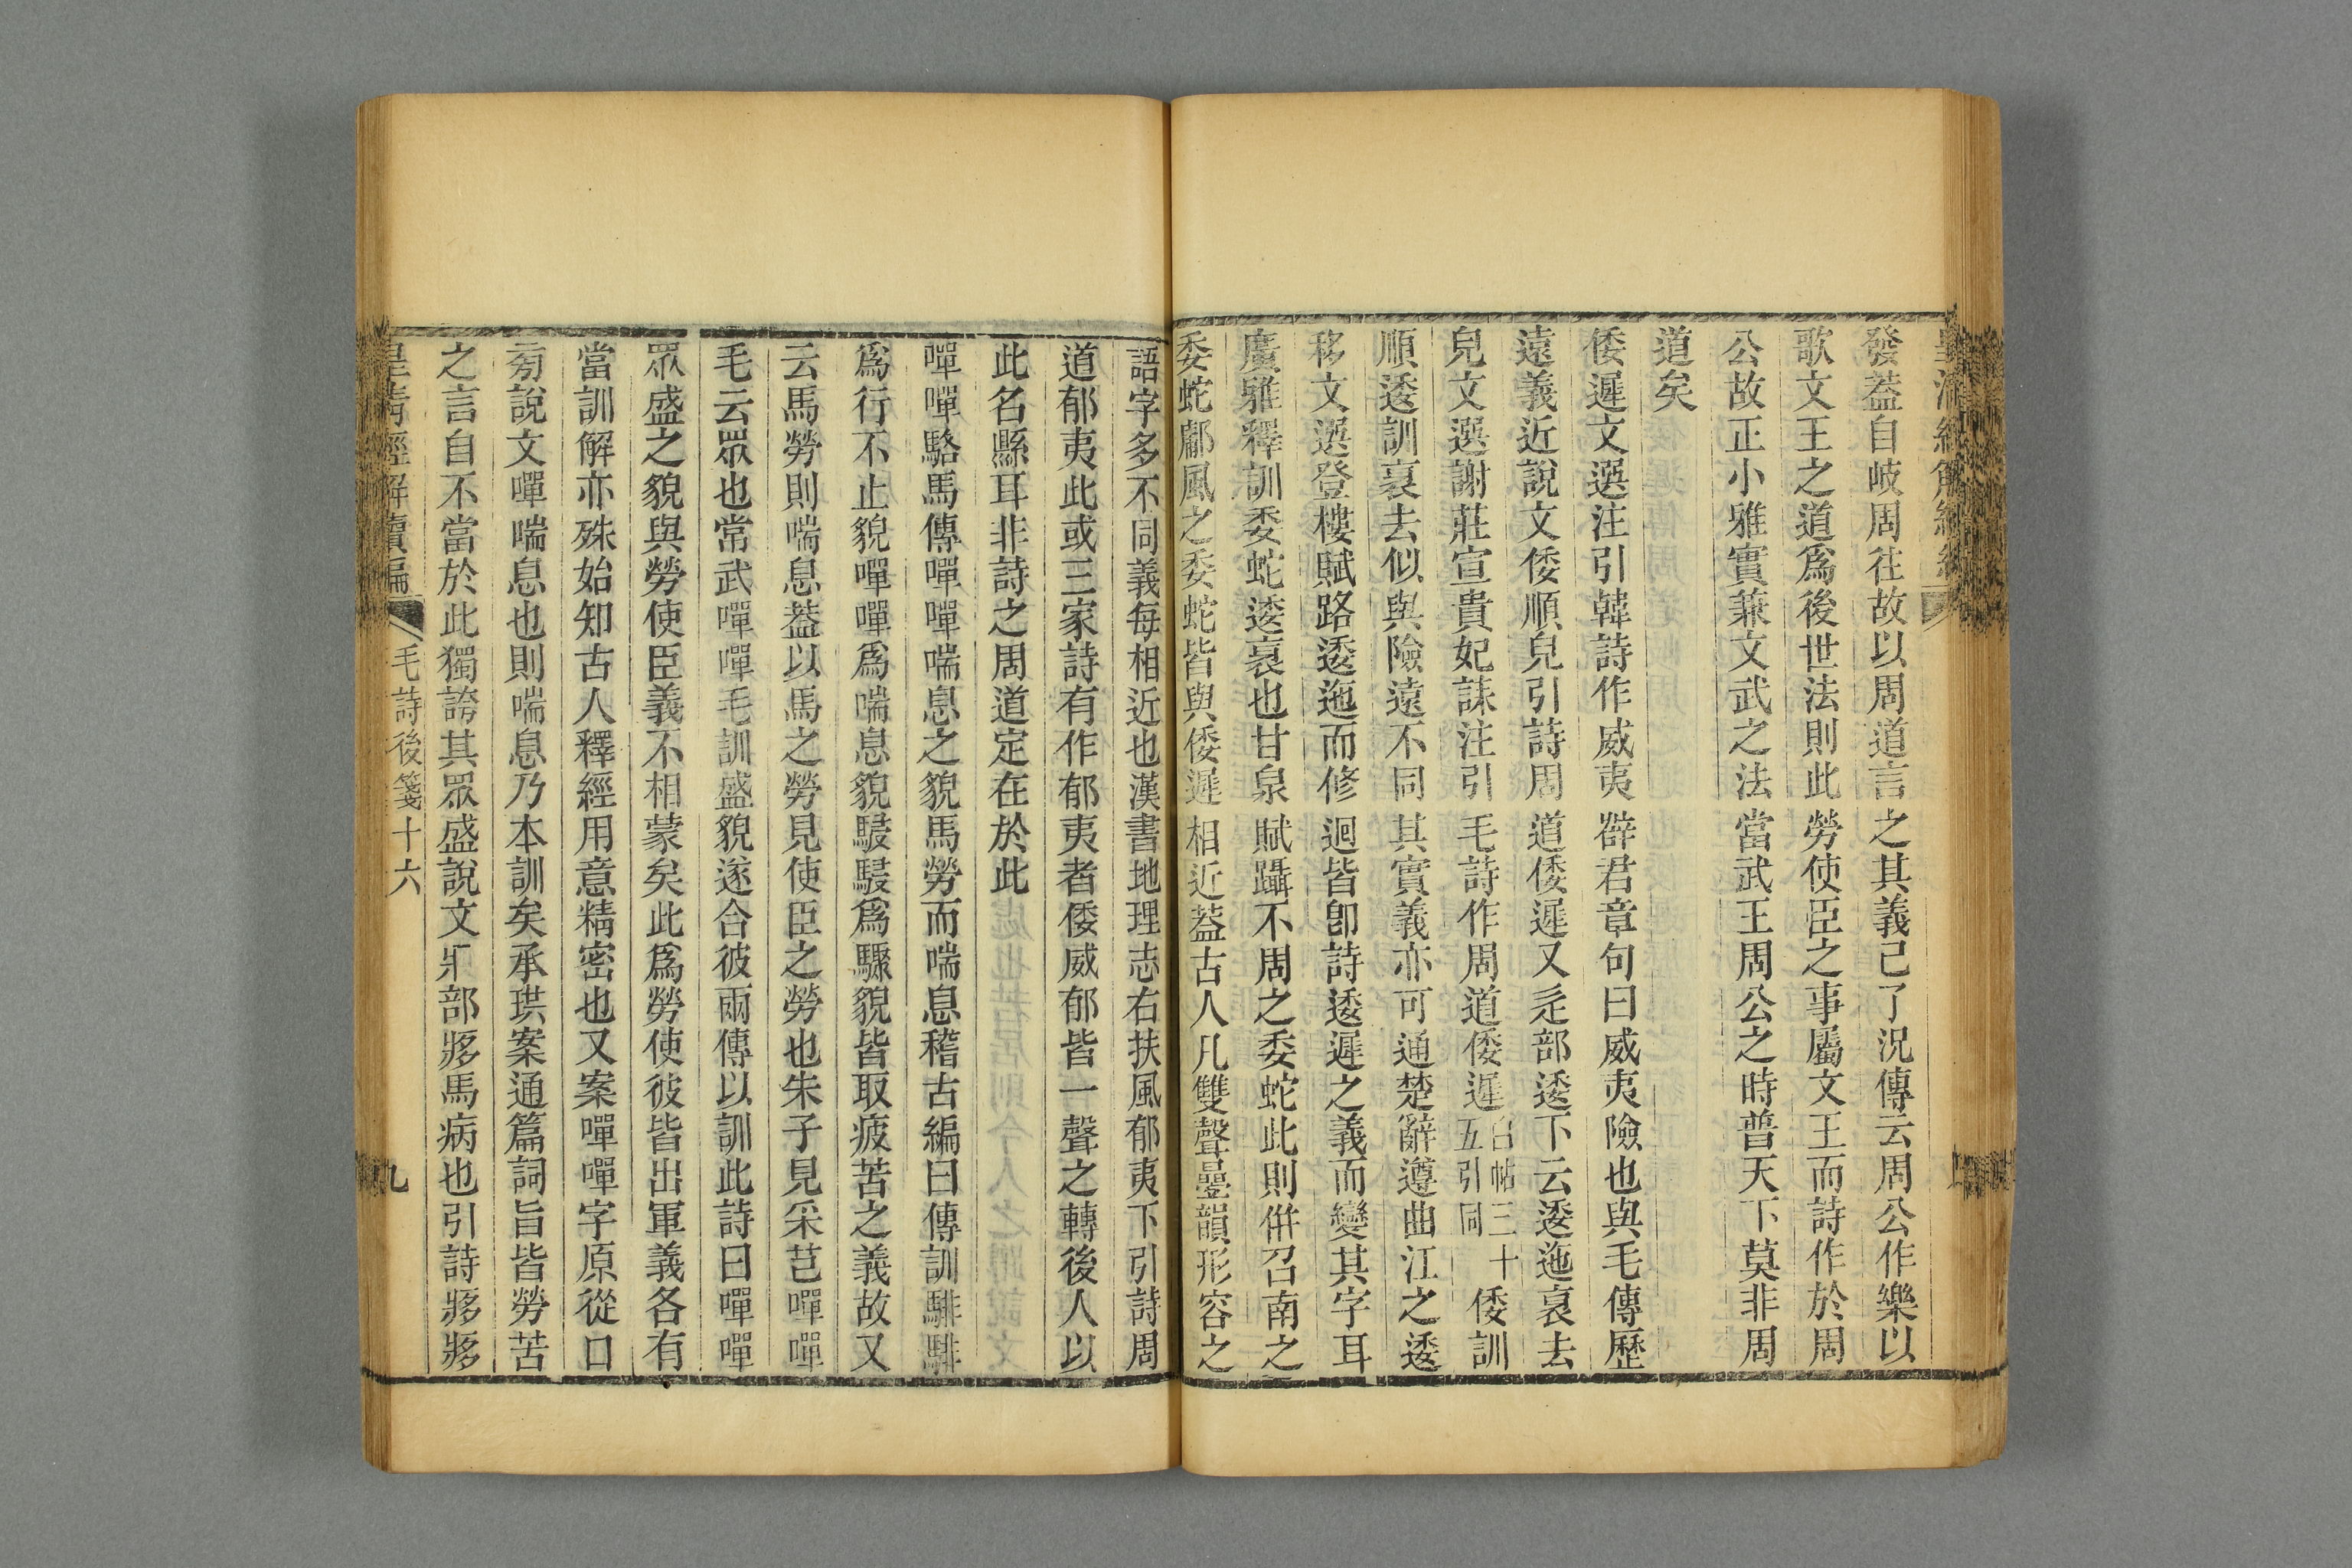 發葢自岐周往故以周道言之其義已了況傳云周公作樂以
歌文王之道爲後世法則此勞使臣之事屬文王而詩作於周
公故正小雅實兼文武之法當武王周公之時普天下莫非周
道矣
倭遲文選注引韓詩作威夷薛君章句曰威夷險也與毛傳歷
遠義近說文倭順皃引詩周道倭遲又辵部逶下云逶迤衺去
皃文選謝莊宣貴妃誄注引毛詩作周道倭遲白帖三十五引同倭訓
順逶訓衺去似與險遠不同其實義亦可通楚辭遵曲江之逶
移文選登樓賦路逶迤而修迥皆卽詩逶遲之義而變其字耳
廣雅釋訓委蛇逶衺也甘泉賦躡不周之委蛇此則倂召南之
委蛇鄘風之委蛇皆與倭遲相近葢古人凡雙聲曡韻形容之
語字多不同義每相近也漢書地理志右扶風郁夷下引詩周
道郁夷此或三家詩有作郁夷者倭威郁皆一聲之轉後人以
此名縣耳非詩之周道定在於此
嘽嘽駱馬傳嘽嘽喘息之貌馬勞而喘息稽古編曰傳訓騑騑
爲行不止貌嘽嘽爲喘息貌駸駸爲驟貌皆取疲苦之義故又
云馬勞則喘息葢以馬之勞見使臣之勞也朱子見采芑嘽嘽
毛云眾也常武嘽嘽毛訓盛貌遂合彼兩傳以訓此詩曰嘽嘽
眾盛之貌與勞使臣義不相蒙矣此爲勞使彼皆出軍義各有
當訓解亦殊始知古人釋經用意精密也又案嘽嘽字原從口
旁說文嘽喘息也則喘息乃本訓矣承珙案通篇詞旨皆勞苦
之言自不當於此獨誇其眾盛說文疒部痑馬病也引詩痑痑
皇清經解續編 毛詩後箋十六 九